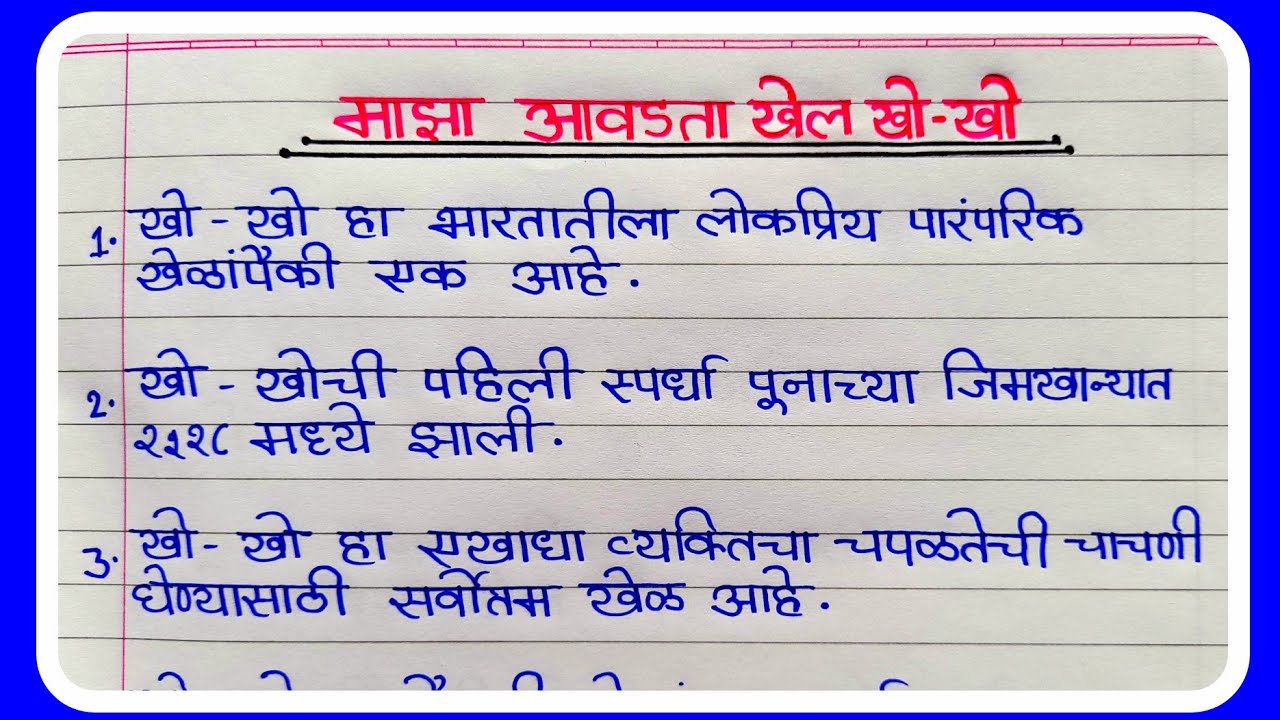 माझा आवडता खेल खो-खो
1. खो - खो हा भारतातीला लोकप्रिय पारंपरिक
खेळांपैकी एक आहे.
2. खो - खोची पहिली स्पर्धा पूनाच्या जिमखान्यात
२५२८ मध्ये झाली.
3. खो - खो हा एखाधा व्यक्तिचा चपळतेची चाचणी
घेण्यासाठी सर्वोतम खेळ आहे.